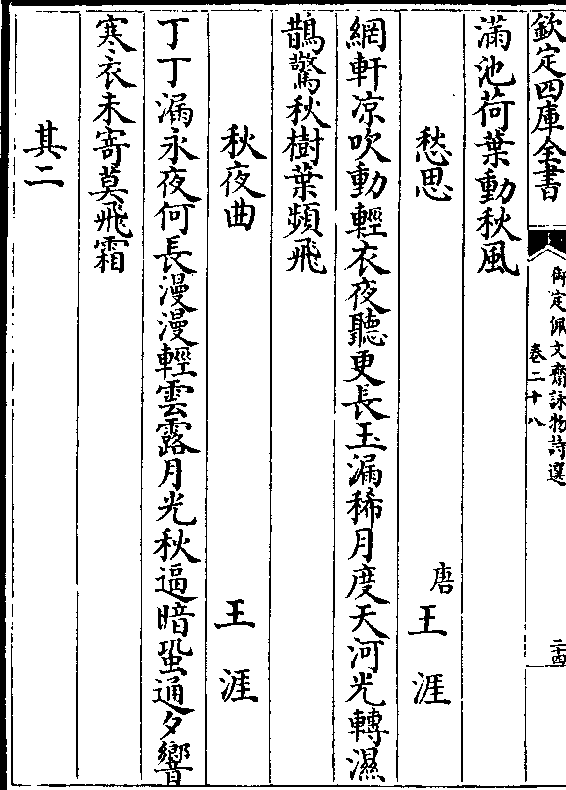 欽定四庫全書
御定佩文齋詠物詩選
卷二十八
二十四
滿池荷葉動秋風
愁思 唐 王涯
網軒凉吹動輕衣夜聽更長玉漏稀月度天河光轉濕
鵲驚秋樹葉頻飛
秋夜曲 王涯
丁丁漏永夜何長漫漫輕雲露月光秋逼暗蛩通夕響
寒衣未寄莫飛霜
其二